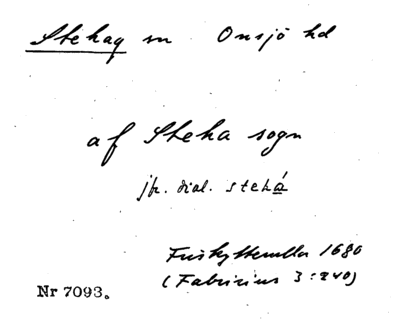 Stehag sn Onsjö hd
af Steha sogn
jfr. dial. stehá
Friskytterulla 1680
(Fabricius 3:240)
Nr 7093.